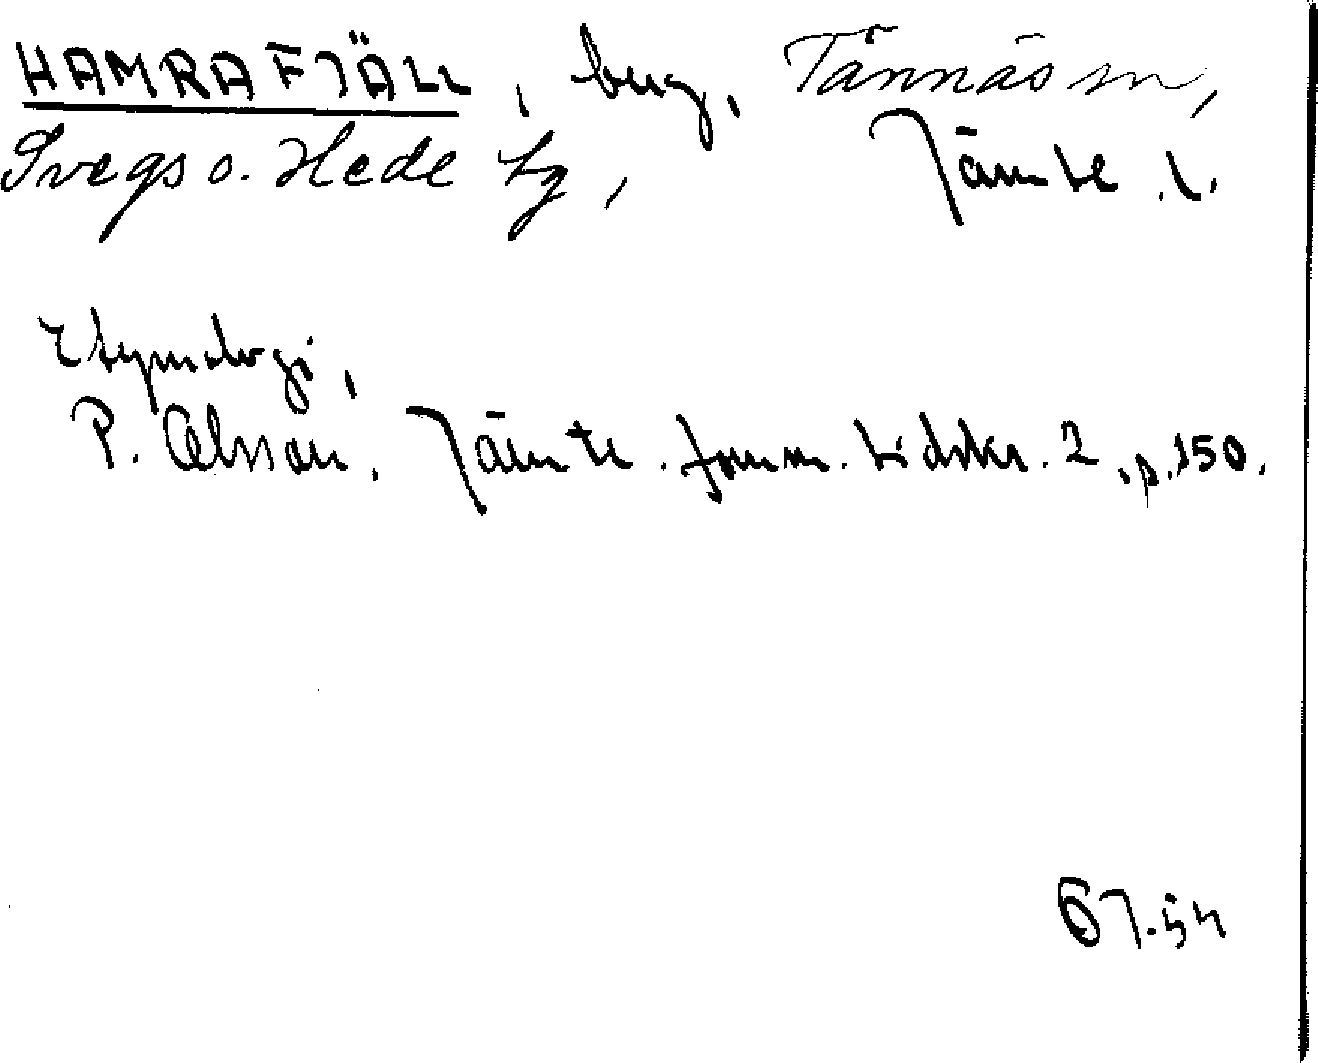 HAMRAFJÄLL, berg, Tännäs sn,
Svegs o. Hede tg, Jämtl. l.
Etymologi,
P. Olsson, Jämtl. fornm. tidskr. 2, p. 150.